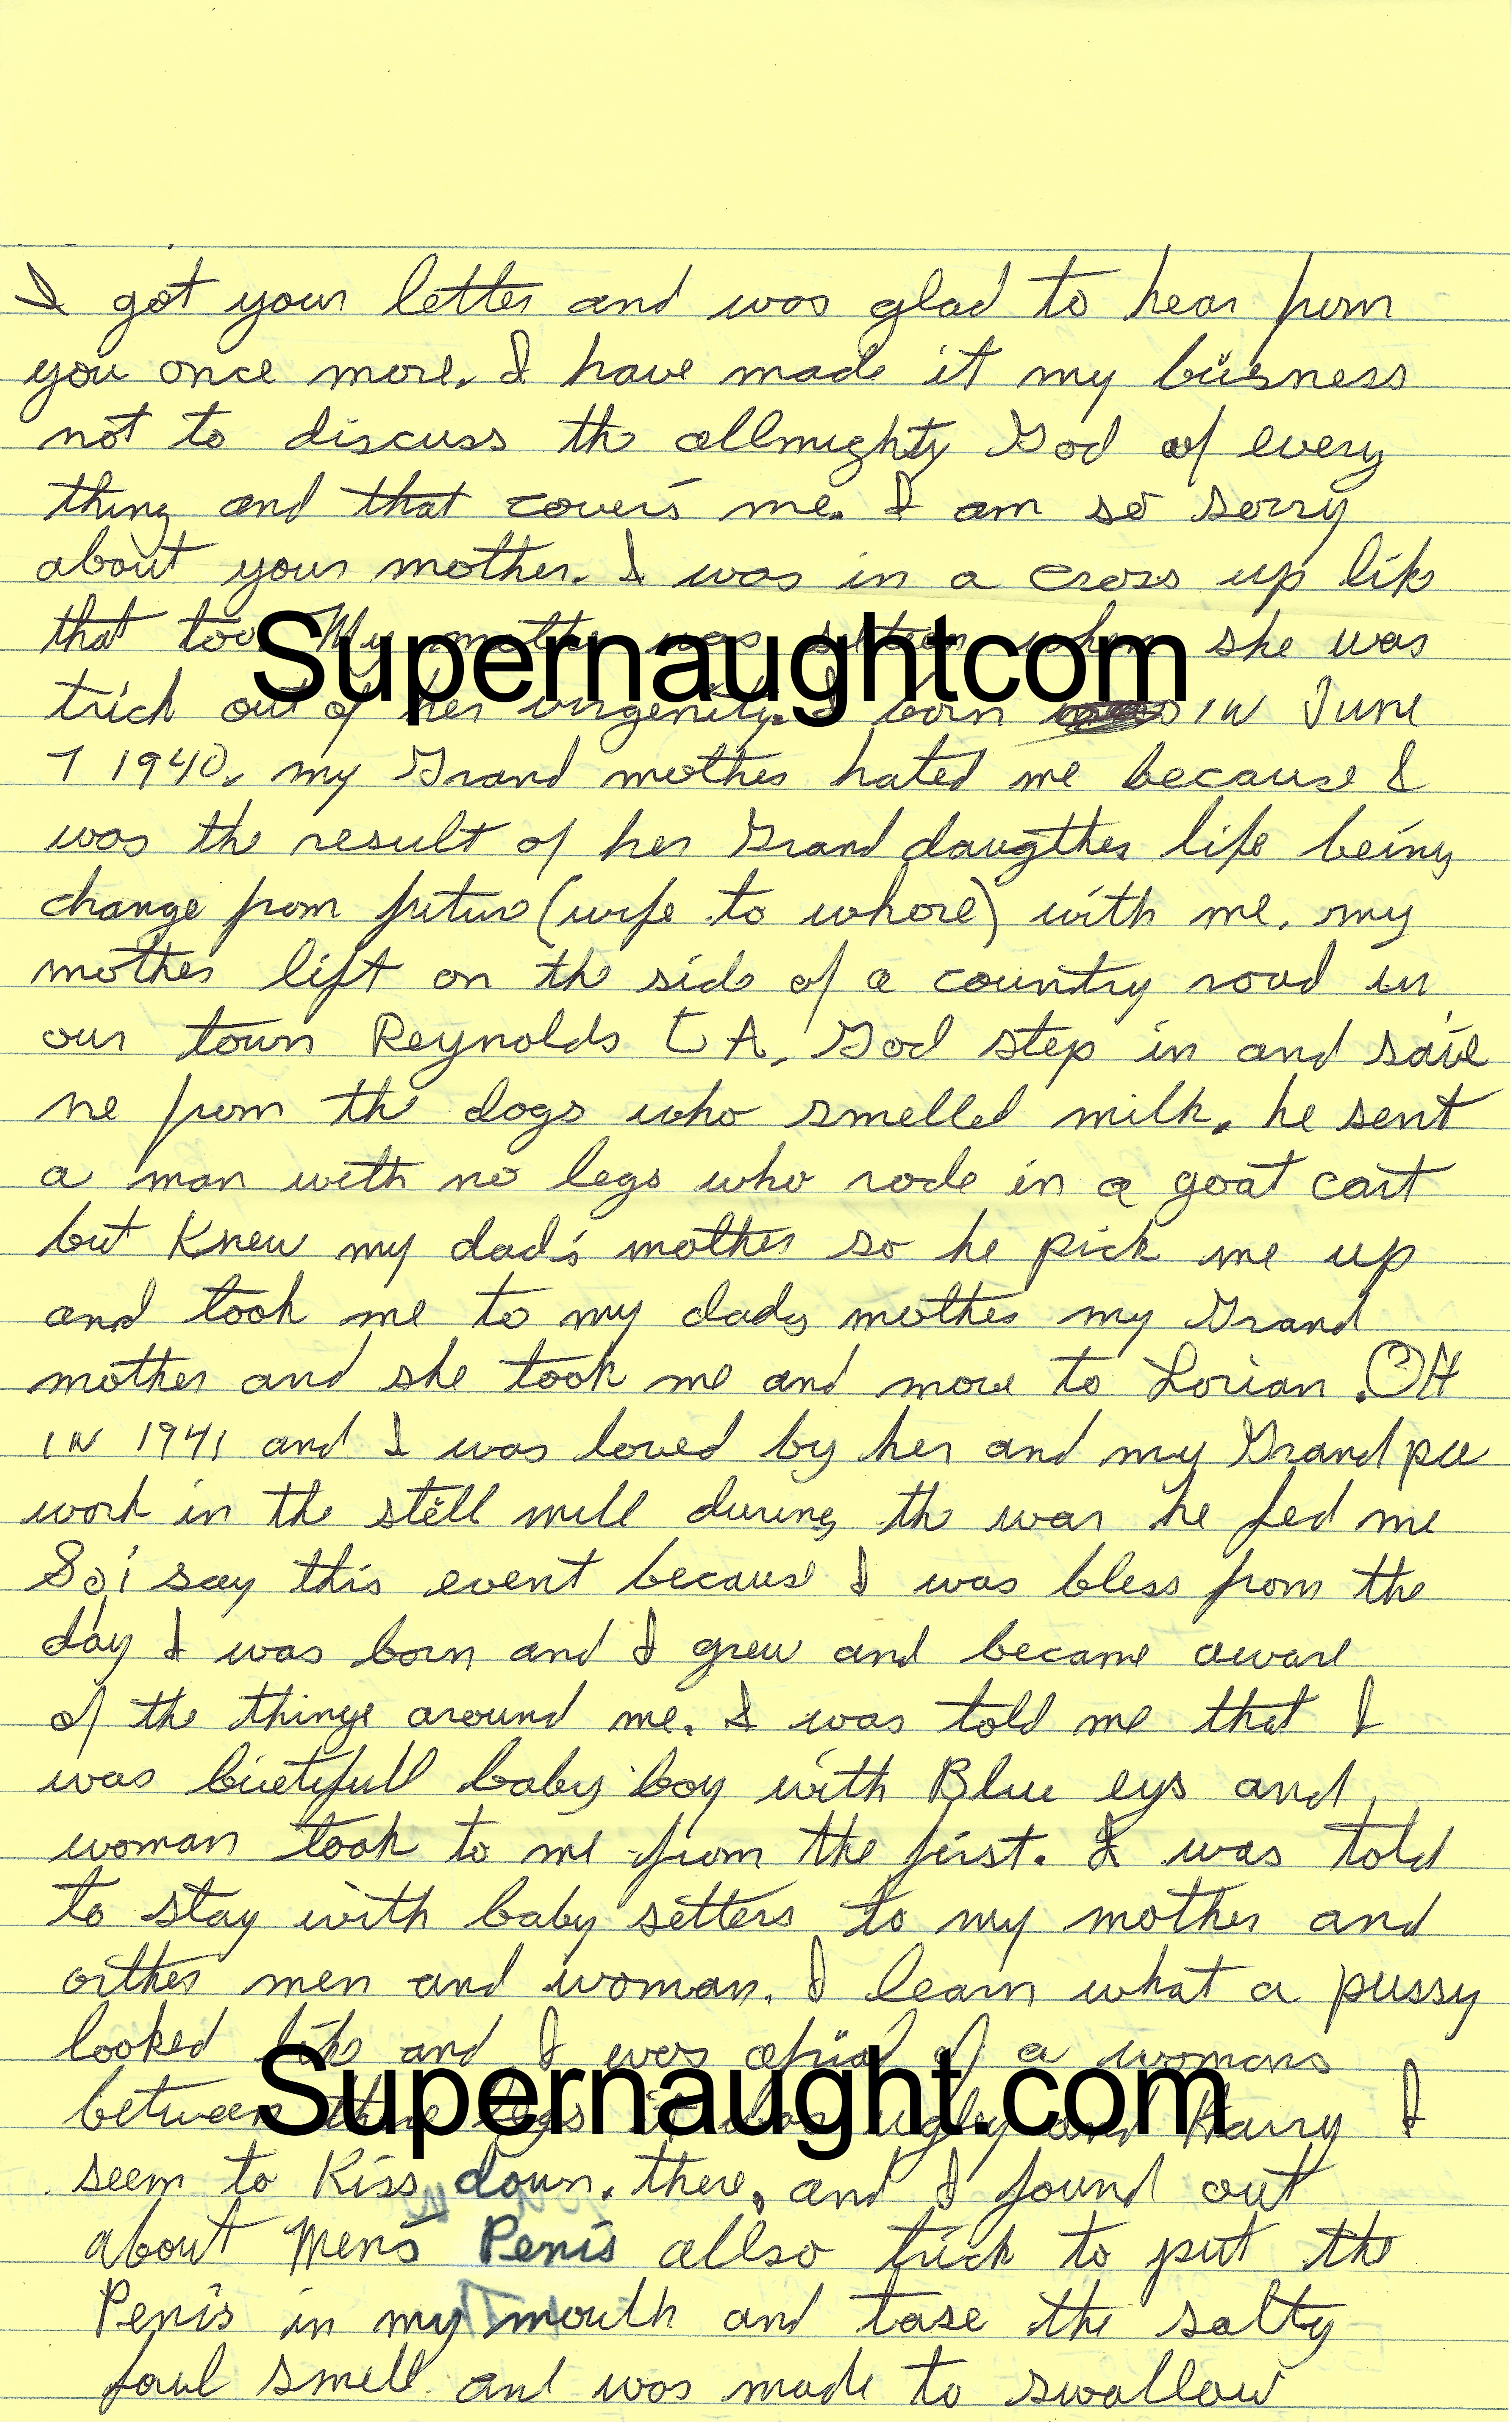 I got your letter and was glad to hear from
you once more. I have made it my buisness
not to discuss the allmighty God of every
thing and that cover's me. I am so sorry
about your mother. I was in a cross up like
that too My mother was when she was
Supernaughtcom
trick out of her virgenity. I born in June
7 1940. my Grand mother hated me because I
was the result of her Grand daugther life being
change from future (wife to whore) with me. my
mother lift on the side of a country road in
our town Reynolds GA. God step in and save
me from the dogs who smelled milk. he sent
a man with no legs who rode in a goat cart
but Knew my dad's mother so he pick me up
and took me to my dads mother my Grand
mother and she took me and move to Lorian. OH
IN 1941 and I was loved by her and my Grand
work in the still mill during the war he fed me
So i say this event because I was bless from the
day I was born and I grew and became aware
of the things around me. I was told me that I
was buetifull baby boy with Blue eys and
woman took to me from the first. I was told
to stay with baby setters to my mother and
Supernaught.com